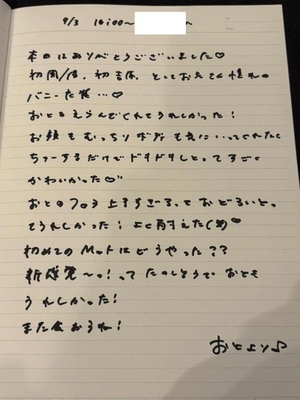 9/3 10:00〜
本日はありがとうございました♡
初同/店、初 としておえさん憧れの
バニーた㨨…♡
おとをえらんでくれてうれしかった!
お顔ももっちりお 気に入ってくれたし
ちゅーするだけでドキドキしとってすごく
かわいかった♡
おとのフロう上手すぎるっておどろいと
てうれしかった!よく耐えた(笑)♡
初めてのMattはどうやった??
新感覚〜っ!ってたのしそうでおとも
うれしかった!
また会おうね!
おとより♪